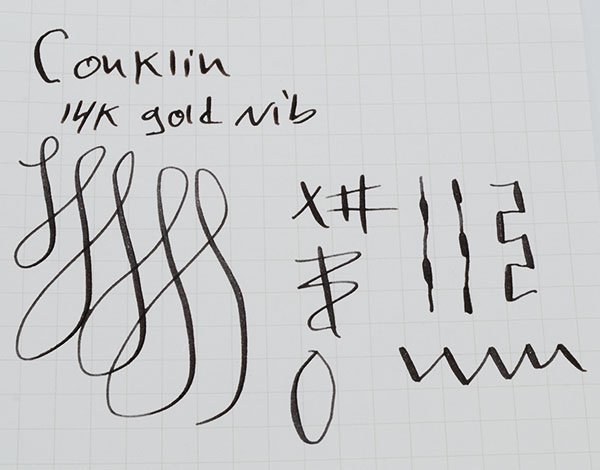 Conklin
14K gold nib
X#